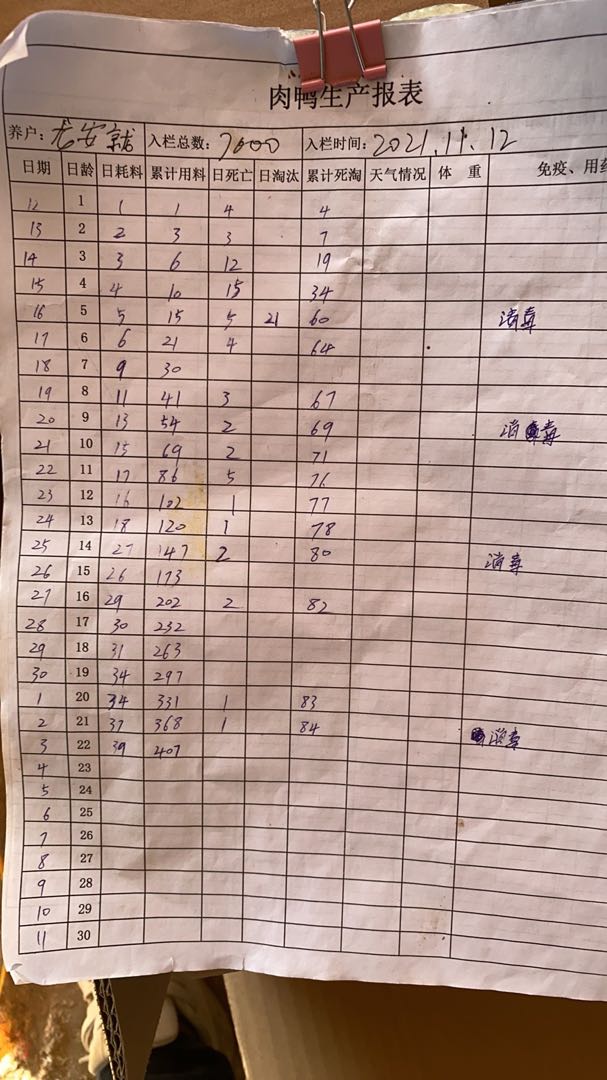 肉鸭生产报表
养户: 老安就 入栏总数: 7000 入栏时间: 2021.11.12
日期 日龄 日耗料 累计用料 日死亡 日淘汰 累计死淘 天气情况 体 重 免疫、用药
12 1 1 1 4 4
13 2 2 3 3 7
14 3 3 6 12 19
15 4 4 10 15 34
16 5 5 15 5 21 60 消毒
17 6 6 21 4 64
18 7 9 30
19 8 11 41 3 67
20 9 13 54 2 69 消毒
21 10 15 69 2 71
22 11 17 86 5 76
23 12 16 102 1 77
24 13 18 120 1 78
25 14 27 147 2 80 消毒
26 15 26 173
27 16 29 202 2 82
28 17 30 232
29 18 31 263
30 19 34 297
1 20 34 331 1 83
2 21 37 368 1 84 消毒
3 22 39 407
4 23
5 24
6 25
7 26
8 27
9 28
10 29
11 30